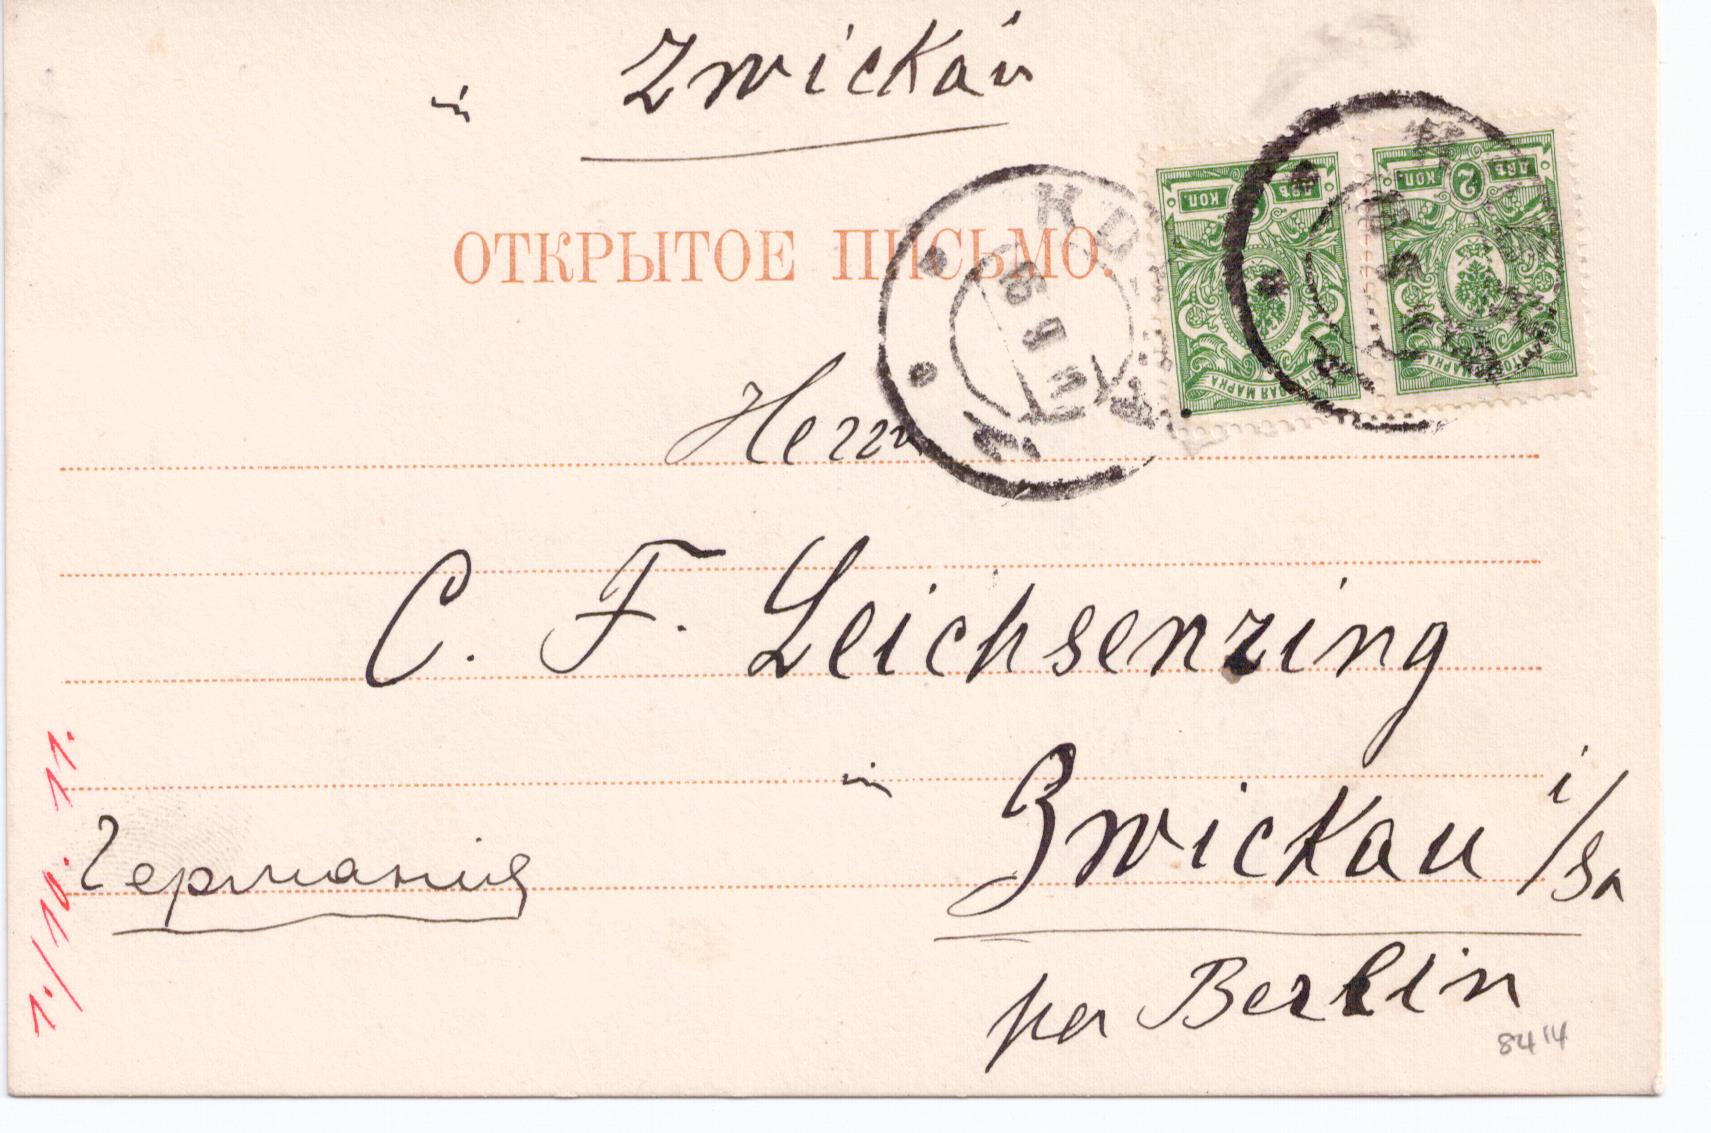 in Zwickau
ОТКРЫТОЕ ПИСЬМО.
ДВѢ 2 КОП.
ДВѢ КОП.
ПОЧТОВАЯ МАРКА
ПОЧТОВАЯ МАРКА
Herrn
C. F. Leichsenring
in Zwickau i/Sa
Германія
per Berlin
1./10. 11.
8414